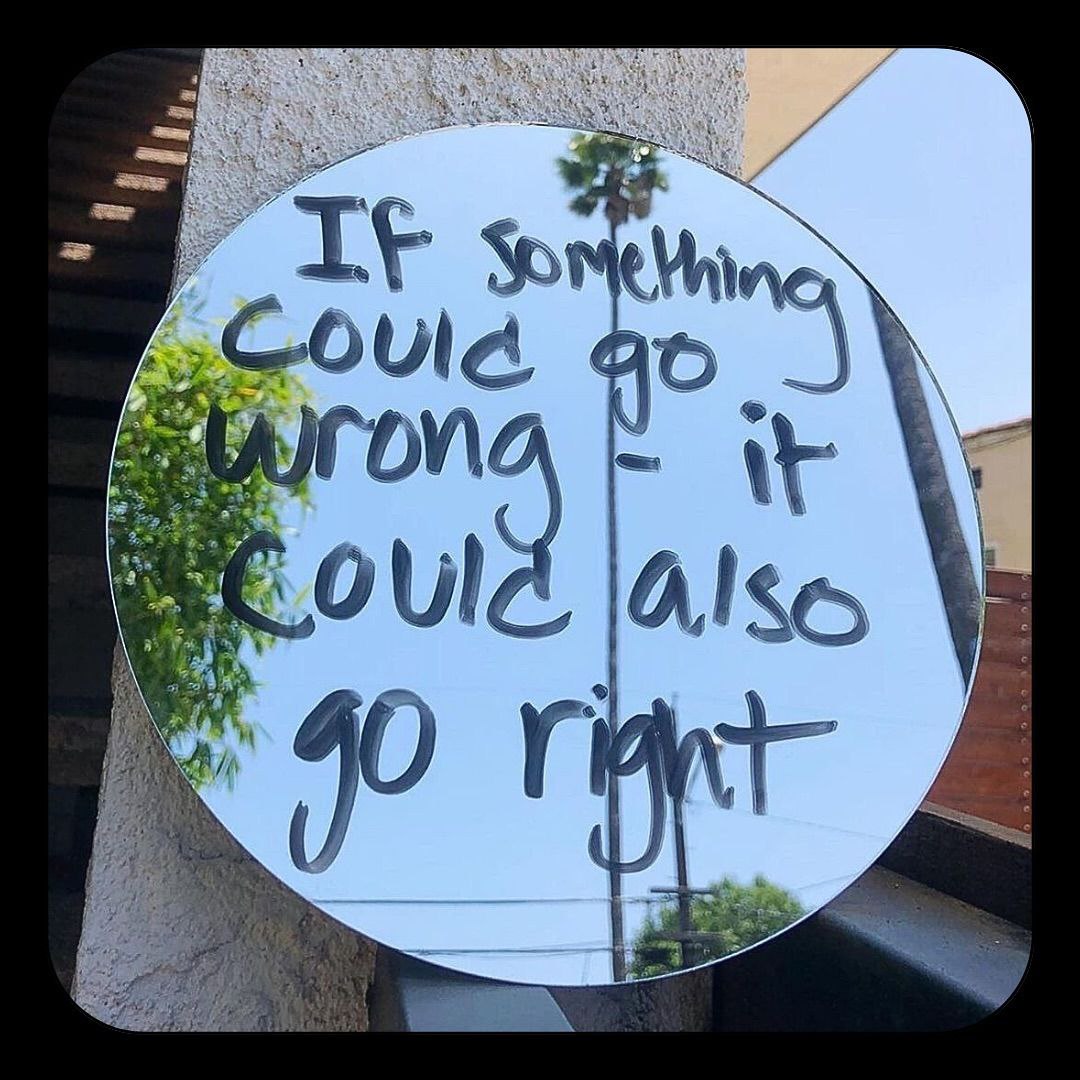 If something
could go
wrong - it
could also
go right